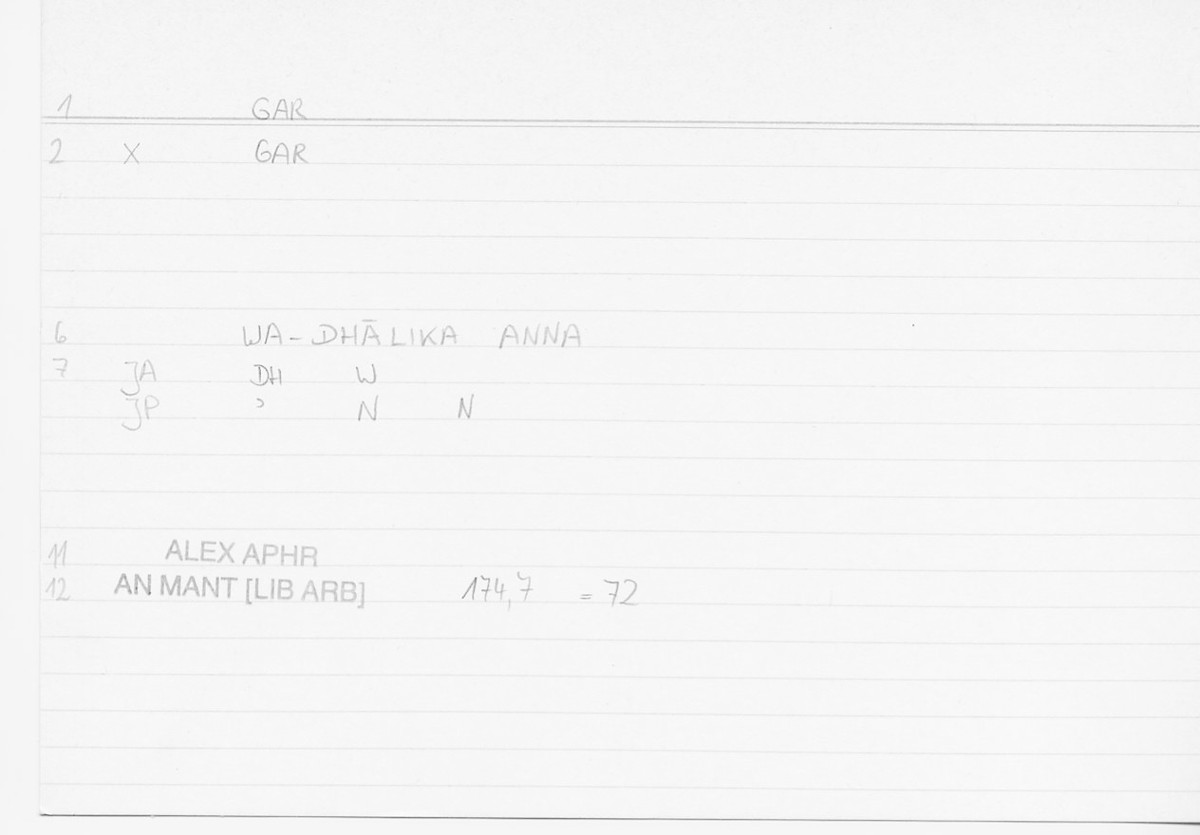 1 GAR
2 X GAR
6 WA-DHĀLIKA ANNA
7 JA DH W
JP ʾ N N
11 ALEX APHR
12 AN MANT [LIB ARB] 174,7 = 72